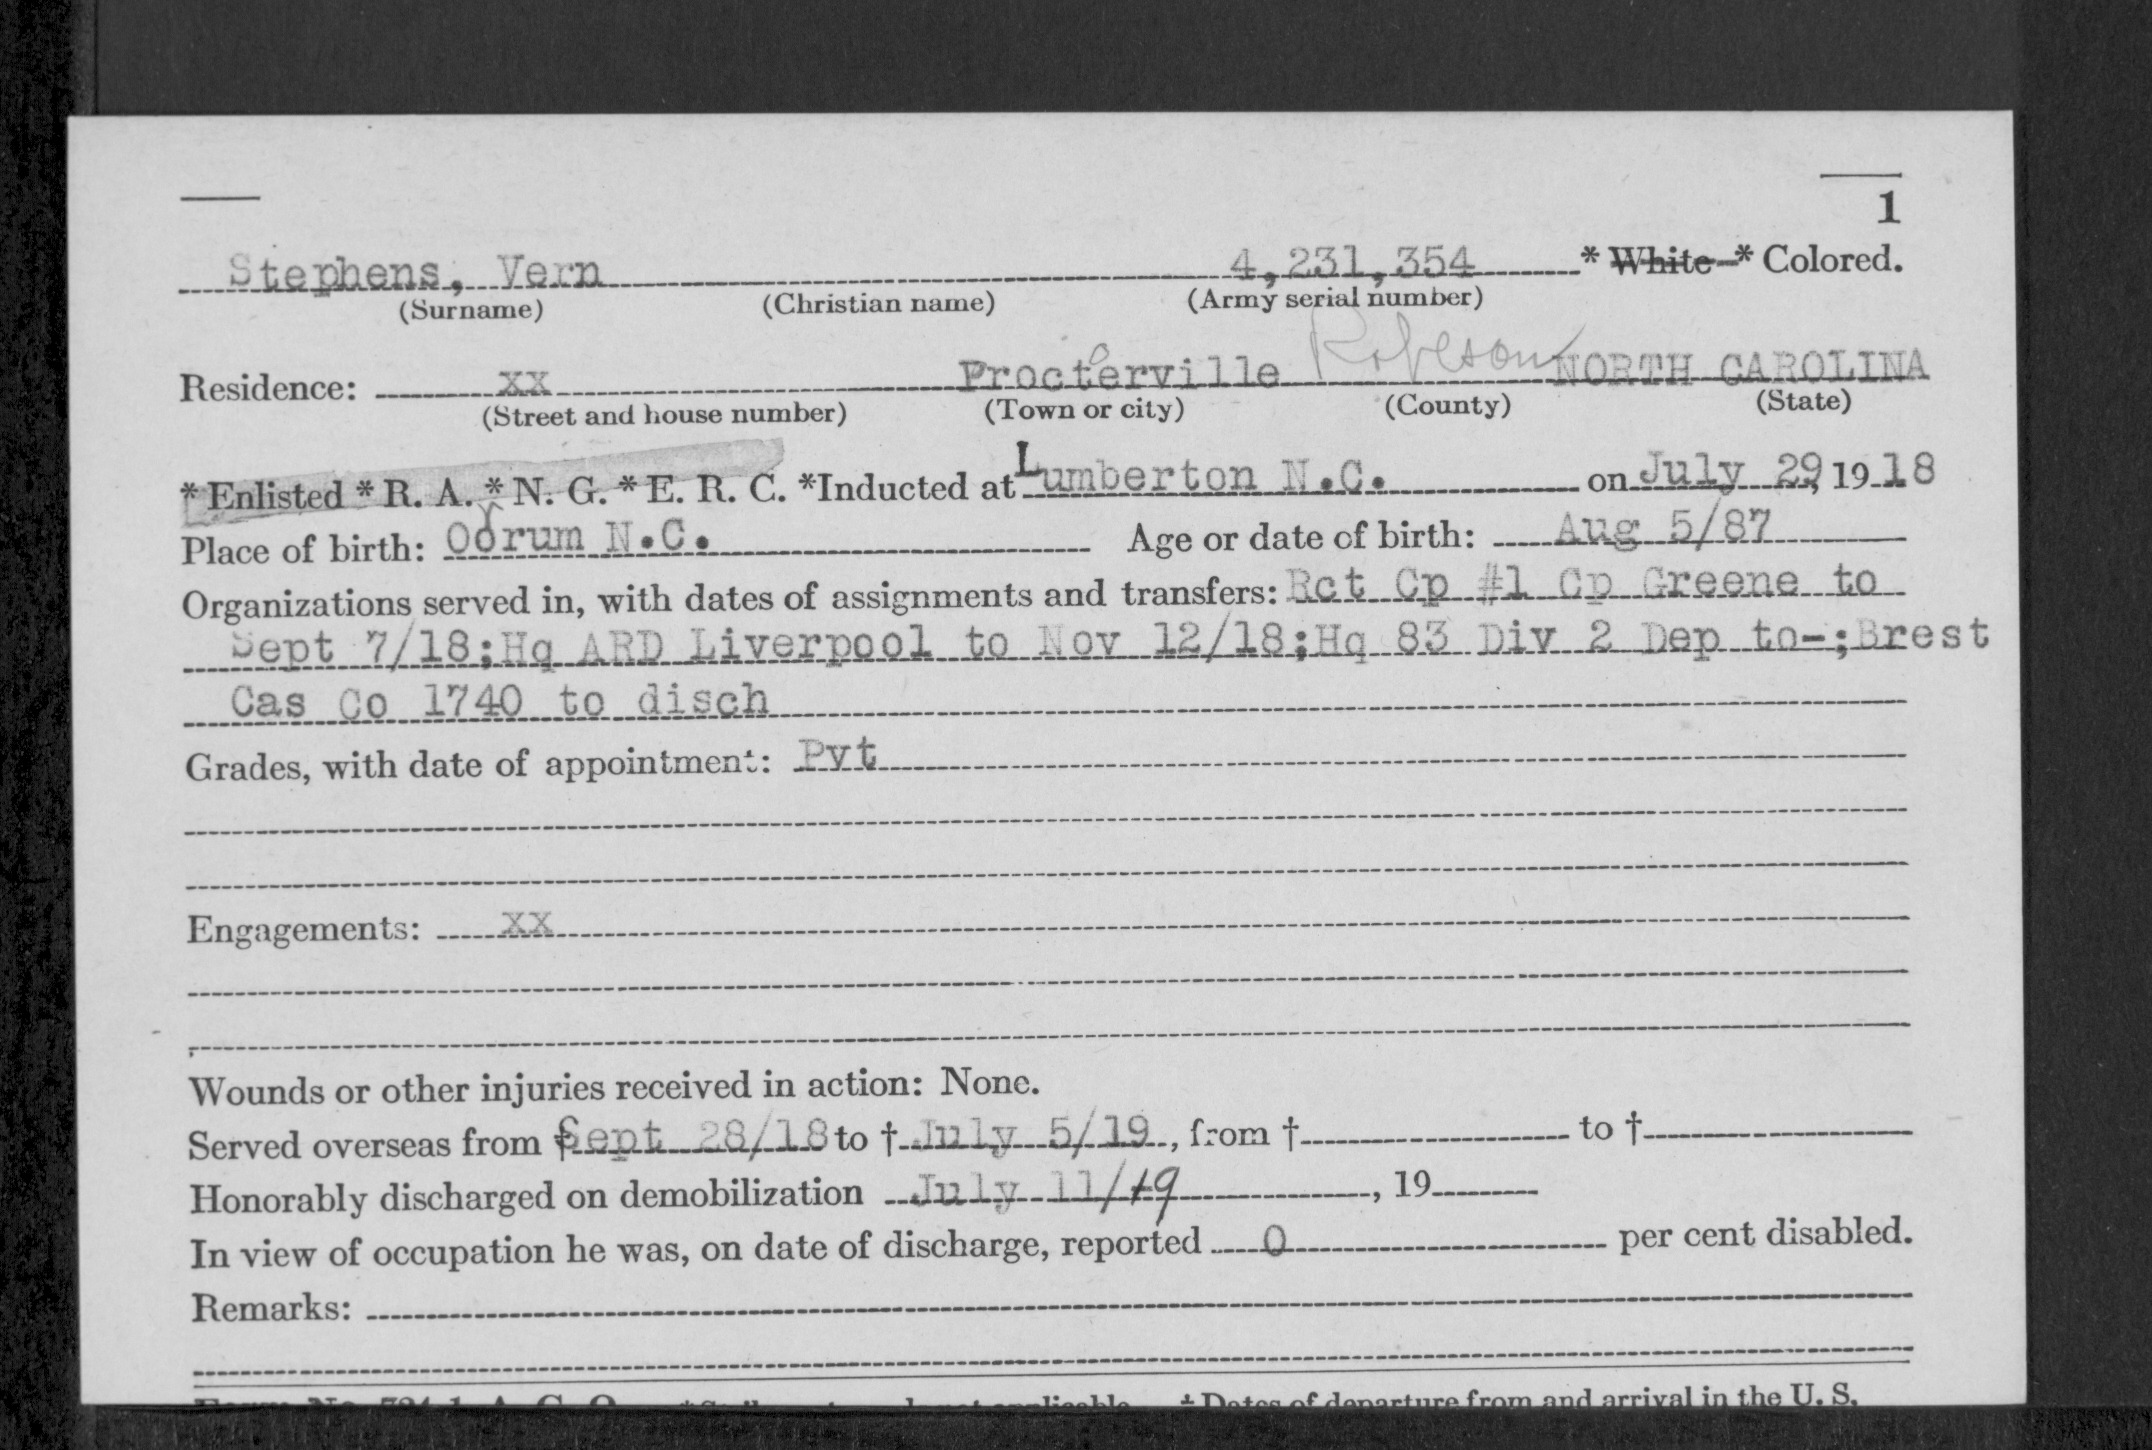 1
Stephens, Vern 4,231,354 * White * Colored.
(Surname) (Christian name) (Army serial number)
Residence: xx Procterville Robeson NORTH CAROLINA
(Street and house number) (Town or city) (County) (State)
* Enlisted * R. A. * N. G. * E. R. C. *Inducted at Lumberton N.C. on July 29, 19 18
Place of birth: Odrum N.C. Age or date of birth: Aug 5/87
Organizations served in, with dates of assignments and transfers: Rct Cp #1 Cp Greene to
Sept 7/18;Hq ARD Liverpool to Nov 12/18;Hq 83 Div 2 Dep to-;Brest
Cas Co 1740 to disch
Grades, with date of appointment: Pvt
Engagements: xx
Wounds or other injuries received in action: None.
Served overseas from † Sept 28/18 to † July 5/19, from † to †
Honorably discharged on demobilization July 11/19, 19
In view of occupation he was, on date of discharge, reported 0 per cent disabled.
Remarks:
Form No. 724-1, A. G. O. applicable. † Dates of departure from and arrival in the U. S.